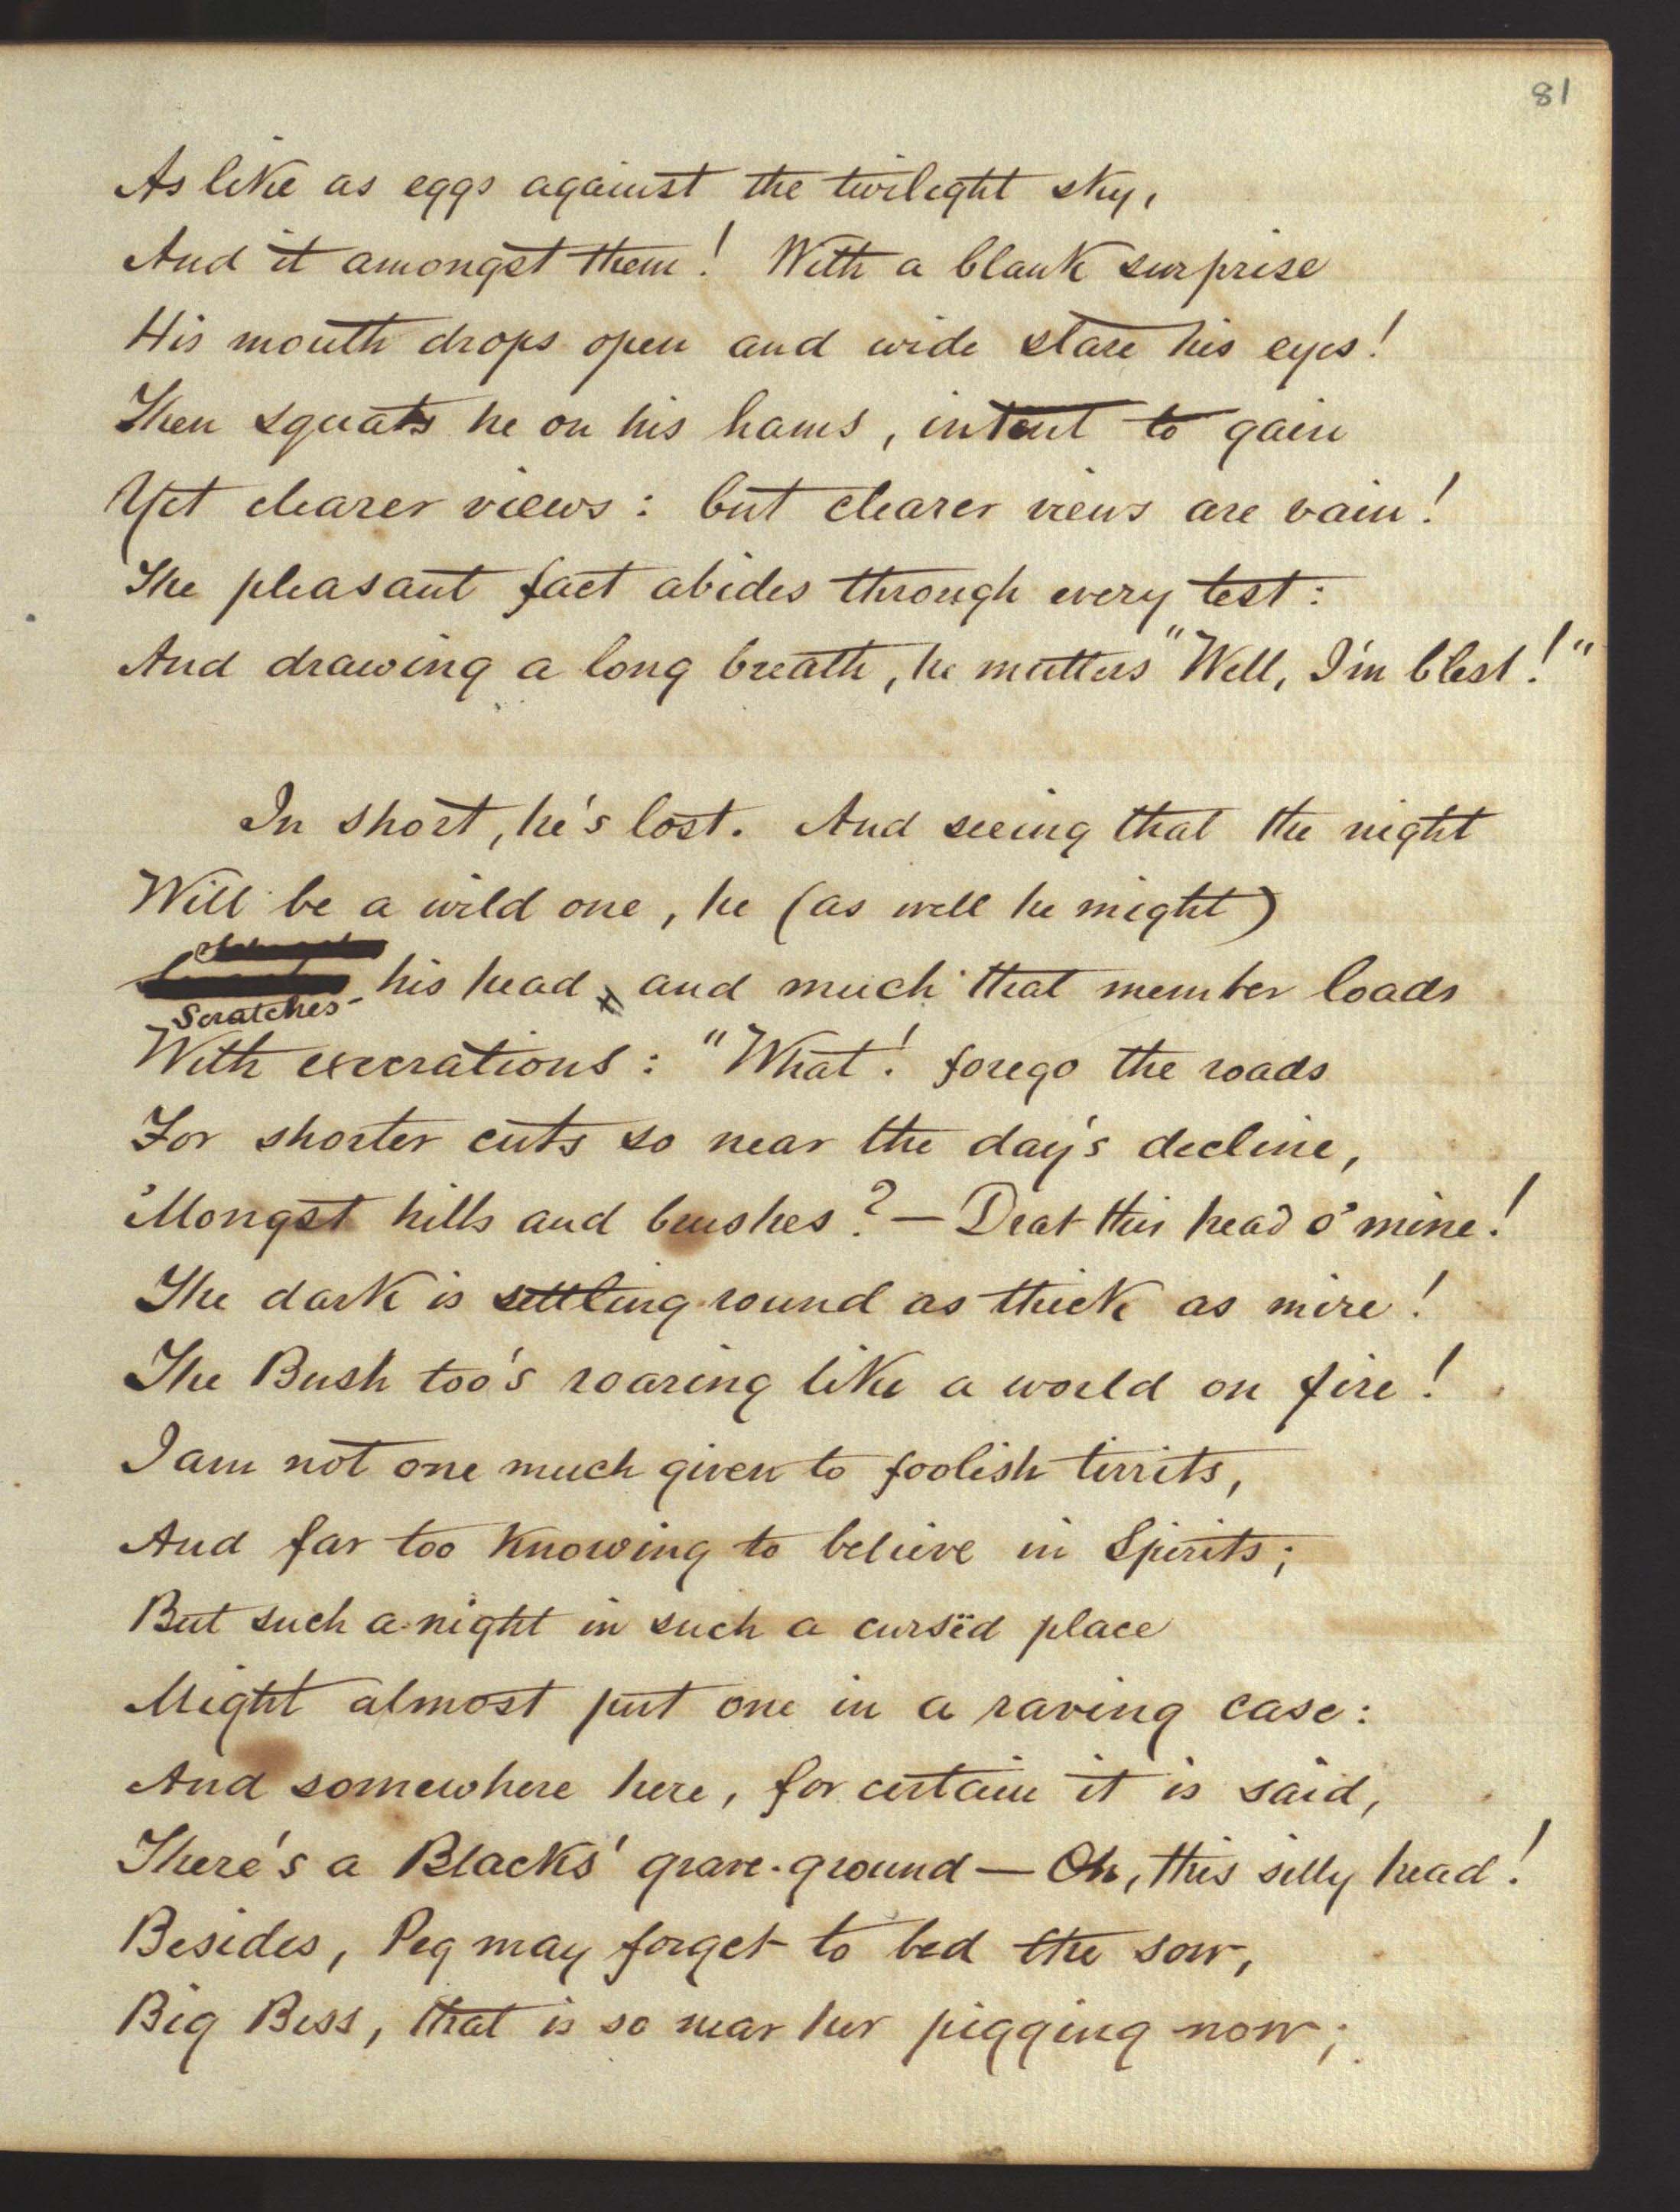 81
As like as eggs against the twilight sky,
And it amongst them! With a blank surprise
His mouth drops open and wide stare his eyes!
Then squats he on his hams, intent to gain
Yet clearer views: but clearer views are vain!
The pleasant fact abides through every test:
And drawing a long breath, he mutters "Well, I'm blest!"
In short, he's lost. And seeing that the night
Will be a wild one, he (as well he might)
Scratches his head, and much that member loads
With execrations: "What! forego the roads
For shorter cuts so near the day's decline,
'Mongst hills and brushes? — Drat this head o' mine!
The dark is settling round as thick as mire!
The Bush too's roaring like a world on fire!
I am not one much given to foolish tirrits,
And far too knowing to believe in Spirits;
But such a night in such a cursëd place
Might almost put one in a raving case:
And somewhere here, for certain it is said,
There's a Blacks' grave-ground — Oh, this silly head!
Besides, Peg may forget to bed the sow,
Big Bess, that is so near her pigging now;